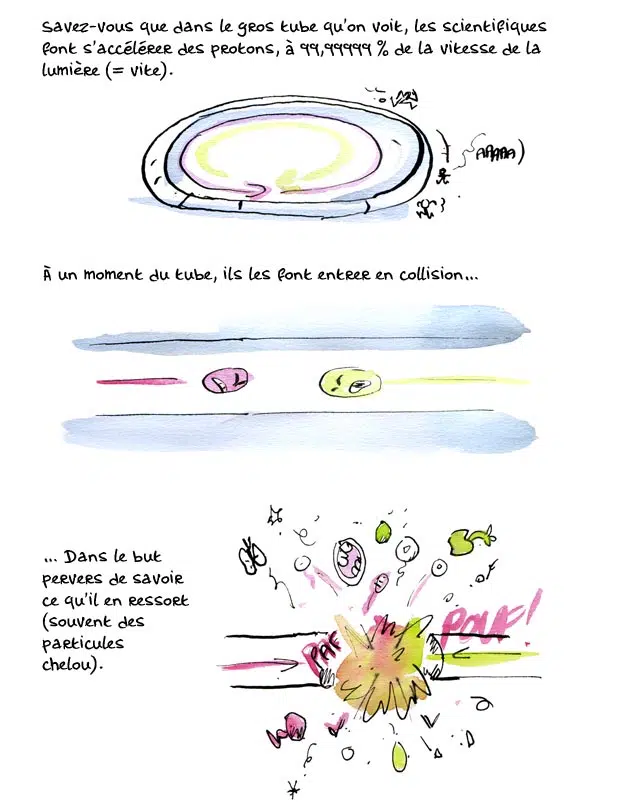 Savez-vous que dans le gros tube qu'on voit, les scientifiques
font s'accélérer des protons, à 99,99999 % de la vitesse de la
lumière (= vite).
AAAAA)
À un moment du tube, ils les font entrer en collision...
... Dans le but
pervers de savoir
ce qu'il en ressort
(souvent des
particules
chelou).
PAF
POUF!